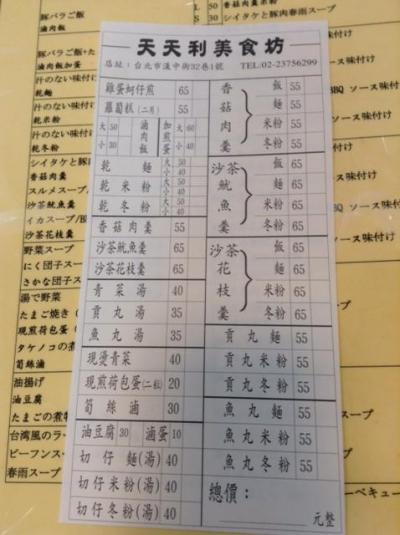 天天利美食坊
店址：台北市漢中街32巷1號 TEL:02-23756299
雞蛋蚵仔煎 65
蘿蔔糕(二片) 55
大 50 小 30 滷肉飯 加煎蛋 大 60 小 40
乾麵 大 50 小 40
乾米粉 大 50 小 40
乾冬粉 大 50 小 40
香菇肉羹 55
沙茶魷魚羹 65
沙茶花枝羹 65
青菜湯 40
貢丸湯 35
魚丸湯 35
現燙青菜 40
現煎荷包蛋(二粒) 20
筍絲滷 30
油豆腐 30 滷蛋 10
切仔麵(湯) 40
切仔米粉(湯) 40
切仔冬粉(湯) 40
香菇肉羹
飯 55
麵 55
米粉 55
冬粉 55
沙茶魷魚羹
飯 65
麵 65
米粉 65
冬粉 65
沙茶花枝羹
飯 65
麵 65
米粉 65
冬粉 65
貢丸麵 55
貢丸米粉 55
貢丸冬粉 55
魚丸麵 55
魚丸米粉 55
魚丸冬粉 55
總價：
元整
豚バラご飯
滷肉飯
滷肉飯加蛋
汁のない味付け
乾麵
汁のない味付け
乾米粉
汁のない味付け
乾冬粉
シイタケと豚
香菇肉羹
スルメスープ/
沙茶魷魚羹
イカスープ/B
沙茶花枝羹
野菜スープ
にく団子スー
さかな団子ス
湯で野菜
たまご焼き
現煎荷包蛋
タケノコの煮
筍絲滷
油揚げ
油豆腐
たまごの煮
台湾風のラー
ビーフンスー
春雨スープ
L 50
S 30
シイタケと豚肉春雨スープ
ソース味付け
BBQ ソース味付け
ソース味付け